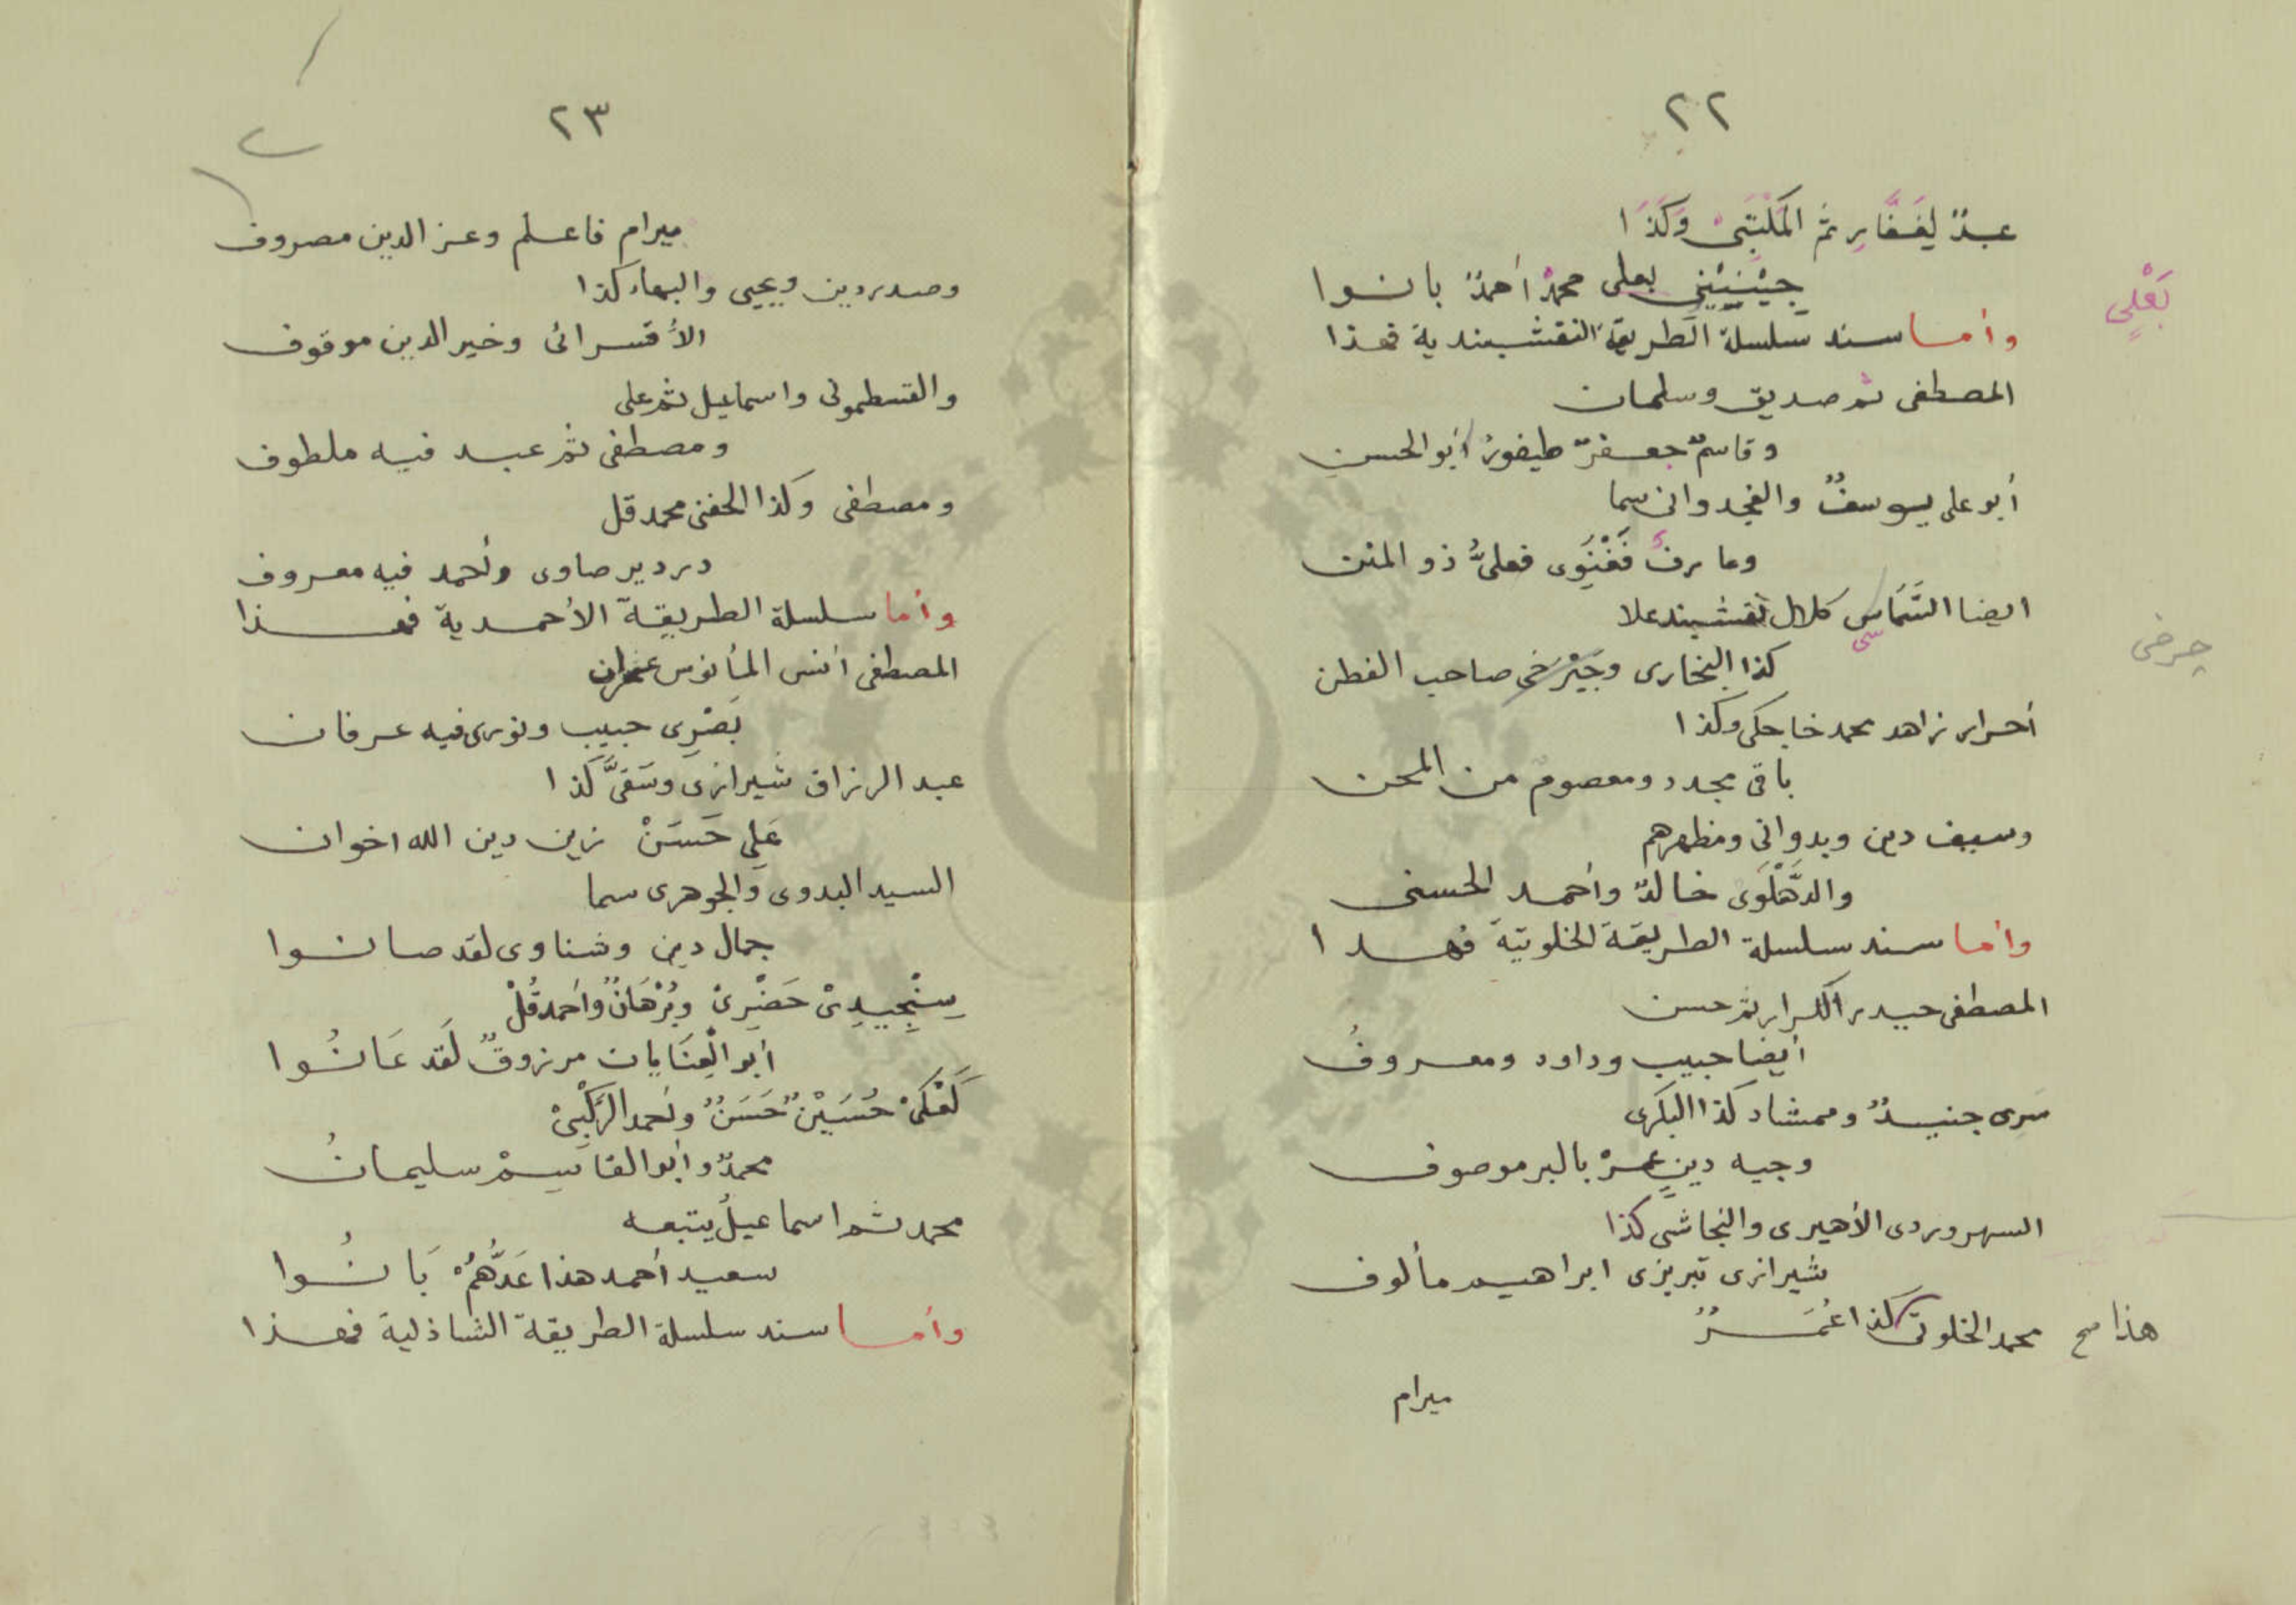 ٢٢
عبدٌ لِغَفَّارِ ثم المَكْتَبَىْ وَكَذَا
جِيْنِيْنِي بعلى محمدْ أحمدٌ بانوا
بَعْلِي
وأما سند سلسلة الطريقة النقشبندية فهذا
المصطفى ثم صديق وسلمان
وقاسمٌ جعفرٌ طيفورُ أبو الحسن
أبو على يوسفٌ والغجدوانى سما
وعارفٌ فَغْنَوِى فعلىُّ ذو المنن
ايضا السَّمَاسى كلال نقشبند علا
كذا البخارى وجَيْرْخى صاحب الفطن
چرخى
أحرار زاهد محمد خاجكى وكذا
باقى مجدد ومعصوم من المحن
وسيف دين وبدوانى ومظهرهم
والدَّهْلَوِى خالدٌ وأحمد الحسنى
وأما سند سلسلة الطريقة الخلوتية فهذا
المصطفى حيدر الكرار ثم حسن
أيضا حبيب وداود ومعروفُ
سَرِى جنيدٌ وممشاد كذا البكرى
وجيه دينٍ عمرْ بالبر موصوف
السهروردى الأهيرى والنجاشى كذا
شيرازى تبريزى ابراهيم مألوف
هذا صح محمد الخلوتى كذا عُمَرٌ
ميرام
٢٣
ميرام فاعلم وعز الدين مصروف
وصدردين ويحيى والبهاء كذا
الأقسرائى وخير الدين موقوف
والقسطمونى واسماعيل ثم على
ومصطفى ثم عبد فيه ملطوف
ومصطفى وكذا الحفنى محمد قل
دردير صاوى وأحمد فيه معروف
وأما سلسلة الطريقة الأحمدية فهذا
المصطفى أنس المأنوس عمران
بَصْرِى حبيب ونورى فيه عرفان
عبد الرزاق شيرازى وسَقَىَّ كذا
عَلِى حَسَنْ زين دين الله اخوان
السيد البدوى والجوهرى سما
جمال دين وشناوى لقد صانوا
سِنْجِيدِىْ حَضْرِىْ وبُرْهَانٌ وأحمد قُلْ
أبو الْعِنَايات مرزوقٌ لَقَد عَانُوا
كَعْكِىْ حُسَيْنٌ حَسَنٌ وأحمد الرَّكْبِىْ
محمدٌ وأبو القاسِمْ سليمانُ
محمد ثم اسماعيلُ يتبعه
سعيد أحمد هذا عَدُّهُمْ بَانُوا
وأما سند سلسلة الطريقة الشاذلية فهذا